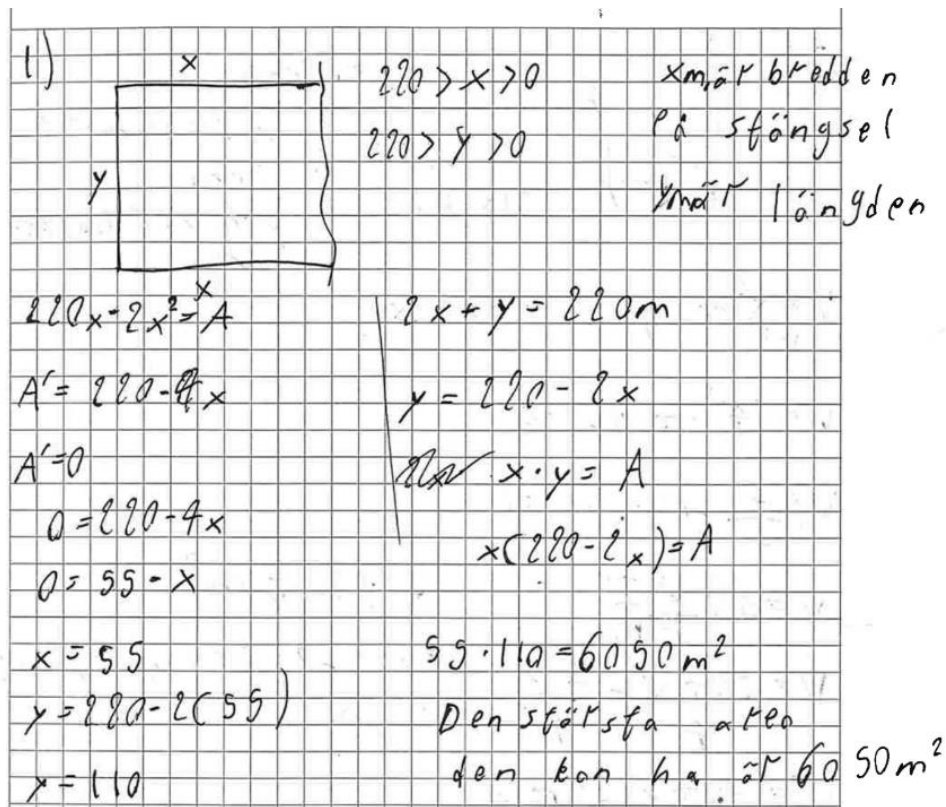 1)
x
y
x
220 > x > 0
220 > y > 0
x m är bredden
på stängsel
y m är längden
220x - 2x² = A
A' = 220 - 4x
A' = 0
0 = 220 - 4x
0 = 55 - x
x = 55
y = 220 - 2(55)
y = 110
2x + y = 220m
y = 220 - 2x
x · y = A
x(220 - 2x) = A
55 · 110 = 6050 m²
Den största area
den kan ha är 6050 m²